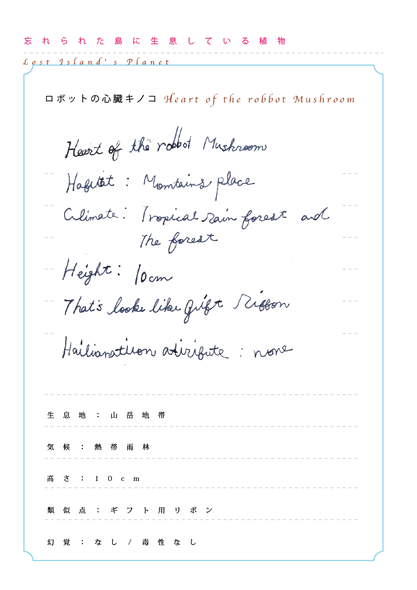 忘れられた島に生息している植物
Lost Island's Planet
ロボットの心臓キノコ Heart of the robbot Mushroom
Heart of the robbot Mushroom
Habitat : Momtains place
Climate : Tropical rain forest and
The forest
Height : 10cm
That's looks like gift Ribbon
atiribute : none
生息地：山岳地帯
気候：熱帯雨林
高さ：10cm
類似点：ギフト用リボン
幻覚：なし/毒性なし